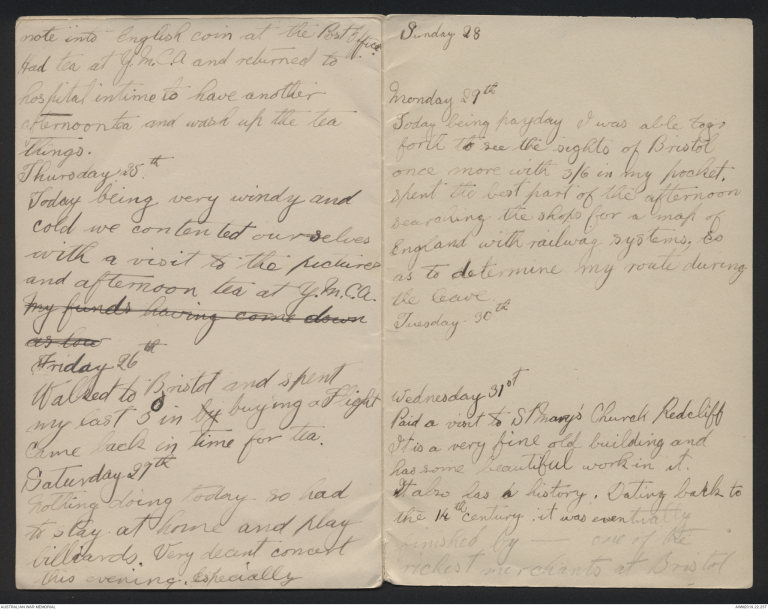 note into English coin at the Post Office.
Had tea at Y.M.C.A and returned to
hospital in time to have another
afternoon tea and wash up the tea
things.
Thursday 25th.
Today being very windy and
cold we contented ourselves
with a visit to the pictures
and afternoon tea at Y.M.C.A.
My funds having come down
as low
Friday 26th
Walked to Bristol and spent
my last 5 in by buying a Flight
Came back in time for tea.
Saturday 27th
Nothing doing today so had
to stay at home and play
billiards. Very decent concert
this evening. Especially
Sunday 28
Monday 29th
Today being payday I was able to go
forth to see the sights of Bristol
once more with 5/6 in my pocket.
Spent the best part of the afternoon
searching the shops for a map of
England with railway systems. So
as to determine my route during
the leave
Tuesday 30th
Wednesday 31st
Paid a visit to St Mary's Church Redcliff
It is a very fine old building and
has some beautiful work in it.
It also has a history. Dating back to
the 14th century. it was eventually
finished by — one of the
richest merchants at Bristol
AUSTRALIAN WAR MEMORIAL